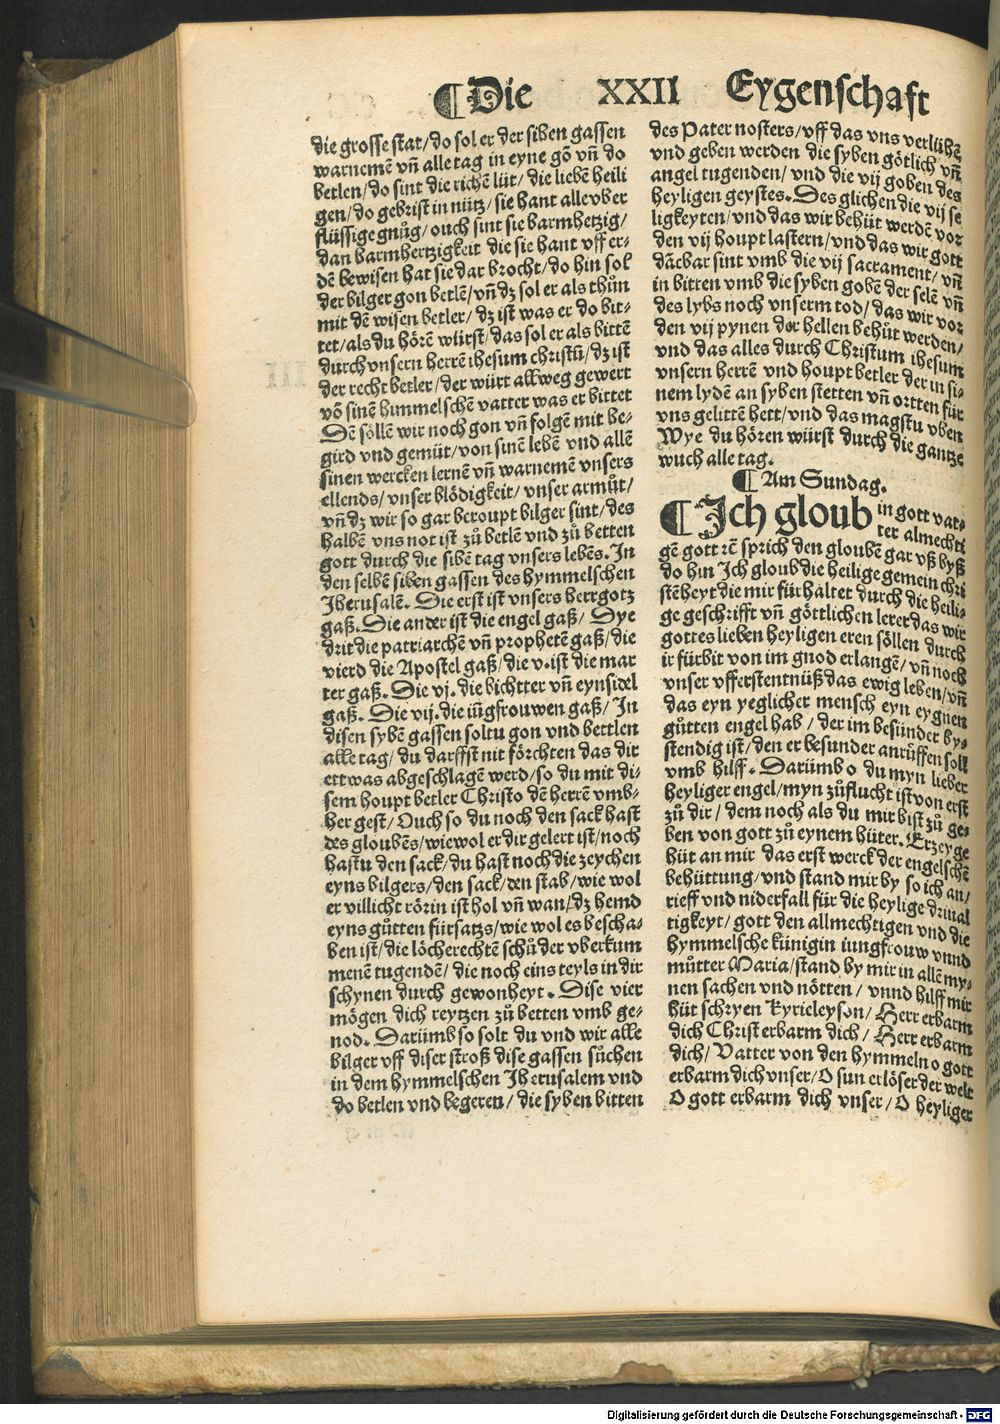 ¶Die XXII Eygenschaft
die grosse stat/do sol er der siben gassen
warnemē vñ alle tag in eyne gō vñ do
betlen/do sint die richē lüt/die liebē heili
gen/do gebrist in nütz/sie hant alle vber
flüssige gnůg/ouch sint sie barmhetzig/
dan barmhertzigkeit die sie hant vff er-
dē bewisen hat sie dar brocht/do hin sol
der bilger gon betlē/vñ dz sol er als thůn
mit dē wisen betler/dz ist was er do bit-
tet/als du hörē würst/das sol er als bittē
durch vnsern herrē ihesum christū/dz ist
der recht betler/der würt allweg gewert
vō sinē himmelschē vatter was er bittet
Dē söllē wir noch gon vñ folgē mit be-
gird vnd gemüt/von sinē lebē vnd allē
sinen wercken lernē vñ warnemē vnsers
ellends/vnser blödigkeit/vnser armůt/
vñ dz wir so gar beroupt bilger sint/des
halbē vns not ist zů betlē vnd zů betten
gott durch die sibē tag vnsers lebēs. In
den selbē siben gassen des hymmelschen
Jherusalē. Die erst ist vnsers herrgotz
gaß. Die ander ist die engel gaß/ Dye
drit die patriarchē vñ prophetē gaß/die
vierd die Apostel gaß/die v. ist die mar
ter gaß. Die vj. die bichtter vñ eynsidel
gaß. Die vij. die iūgfrouwen gaß/ In
disen sybē gassen soltu gon vnd bettlen
alle tag/du darffst nit förchten das dir
ettwas abgeschlagē werd/so du mit di-
sem houpt betler Christo dē herrē vmb-
her gest/Ouch so du noch den sack hast
des gloubēs/wiewol er dir gelert ist/noch
hastu den sack/du hast noch die zeychen
eyns bilgers/den sack/den stab/wie wol
er villicht rörin ist hol vñ wan/dz hemd
eyns gůtten fürsatzs/wie wol es bescha-
ben ist/die löcherechtē schů der vberkum
menē tugendē/die noch eins teyls in dir
schynen durch gewonheyt. Dise vier
mögen dich reytzen zů betten vmb ge-
nod. Darümb so solt du vnd wir alle
bilger vff diser stroß dise gassen süchen
in dem hymmelschen Jherusalem vnd
do betlen vnd begeren/die syben bitten
des Pater nosters/vff das vns verlühē
vnd geben werden die syben götlich vñ
angel tugenden/vnd die vij goben des
heyligen geystes. Des glichen die vij se
ligkeyten/vnd das wir behüt werdē vor
den vij houpt lastern/vnd das wir gott
dācbar sint vmb die vij sacrament/vñ
in bitten vmb die syben gobē der selē vñ
des lybs noch vnserm tod/das wir vor
den vij pynen der hellen behůt werden/
vnd das alles durch Christum ihesum
vnsern herrē vnd houpt betler der in si-
nem lydē an syben stetten vñ ortten für
vns gelittē hett/vnd das magstu vben
Wye du hören würst durch die gantze
wuch alle tag.
¶Am Sundag.
¶Ich gloub in gott vat-
ter almechti
gē gott rē sprich den gloubē gar vß byß
do hin Ich gloub die heilige gemein chri
stēheyt die mir fürhaltet durch die heili-
ge geschrifft vñ göttlichen lerer das wir
gottes lieben heyligen eren söllen durch
ir fürbit von im gnod erlangē/vñ noch
vnser vfferstentnüß das ewig leben/vñ
das eyn yeglicher mensch eyn eygnen
gůtten engel hab/der im besünder by-
stendig ist/den er besunder anrüffen soll
vmb hilff. Darümb o du myn lieber
heyliger engel/myn zůflucht ist von erst
zů dir/dem noch als du mir bist zů ge-
ben von gott zů eynem hüter. Erzeyge
hüt an mir das erst werck der engelschē
behüttung/vnd stand mir by so ich an/
rieff vnd niderfall für die heylige driual
tigkeyt/gott den allmechtigen vnd die
hymmelsche künigin iungfrouw vnnd
můtter Maria/stand by mir in allē my-
nen sachen vnd nötten/vnnd hilff mir
hüt schryen Kyrieleyson/Herr erbarm
dich Christ erbarm dich/Herr erbarm
dich/Vatter von den hymmeln o gott
erbarm dich vnser/O sun erlöser der welt
O gott erbarm dich vnser/O heyliger
Digitalisierung gefördert durch die Deutsche Forschungsgemeinschaft - DFG